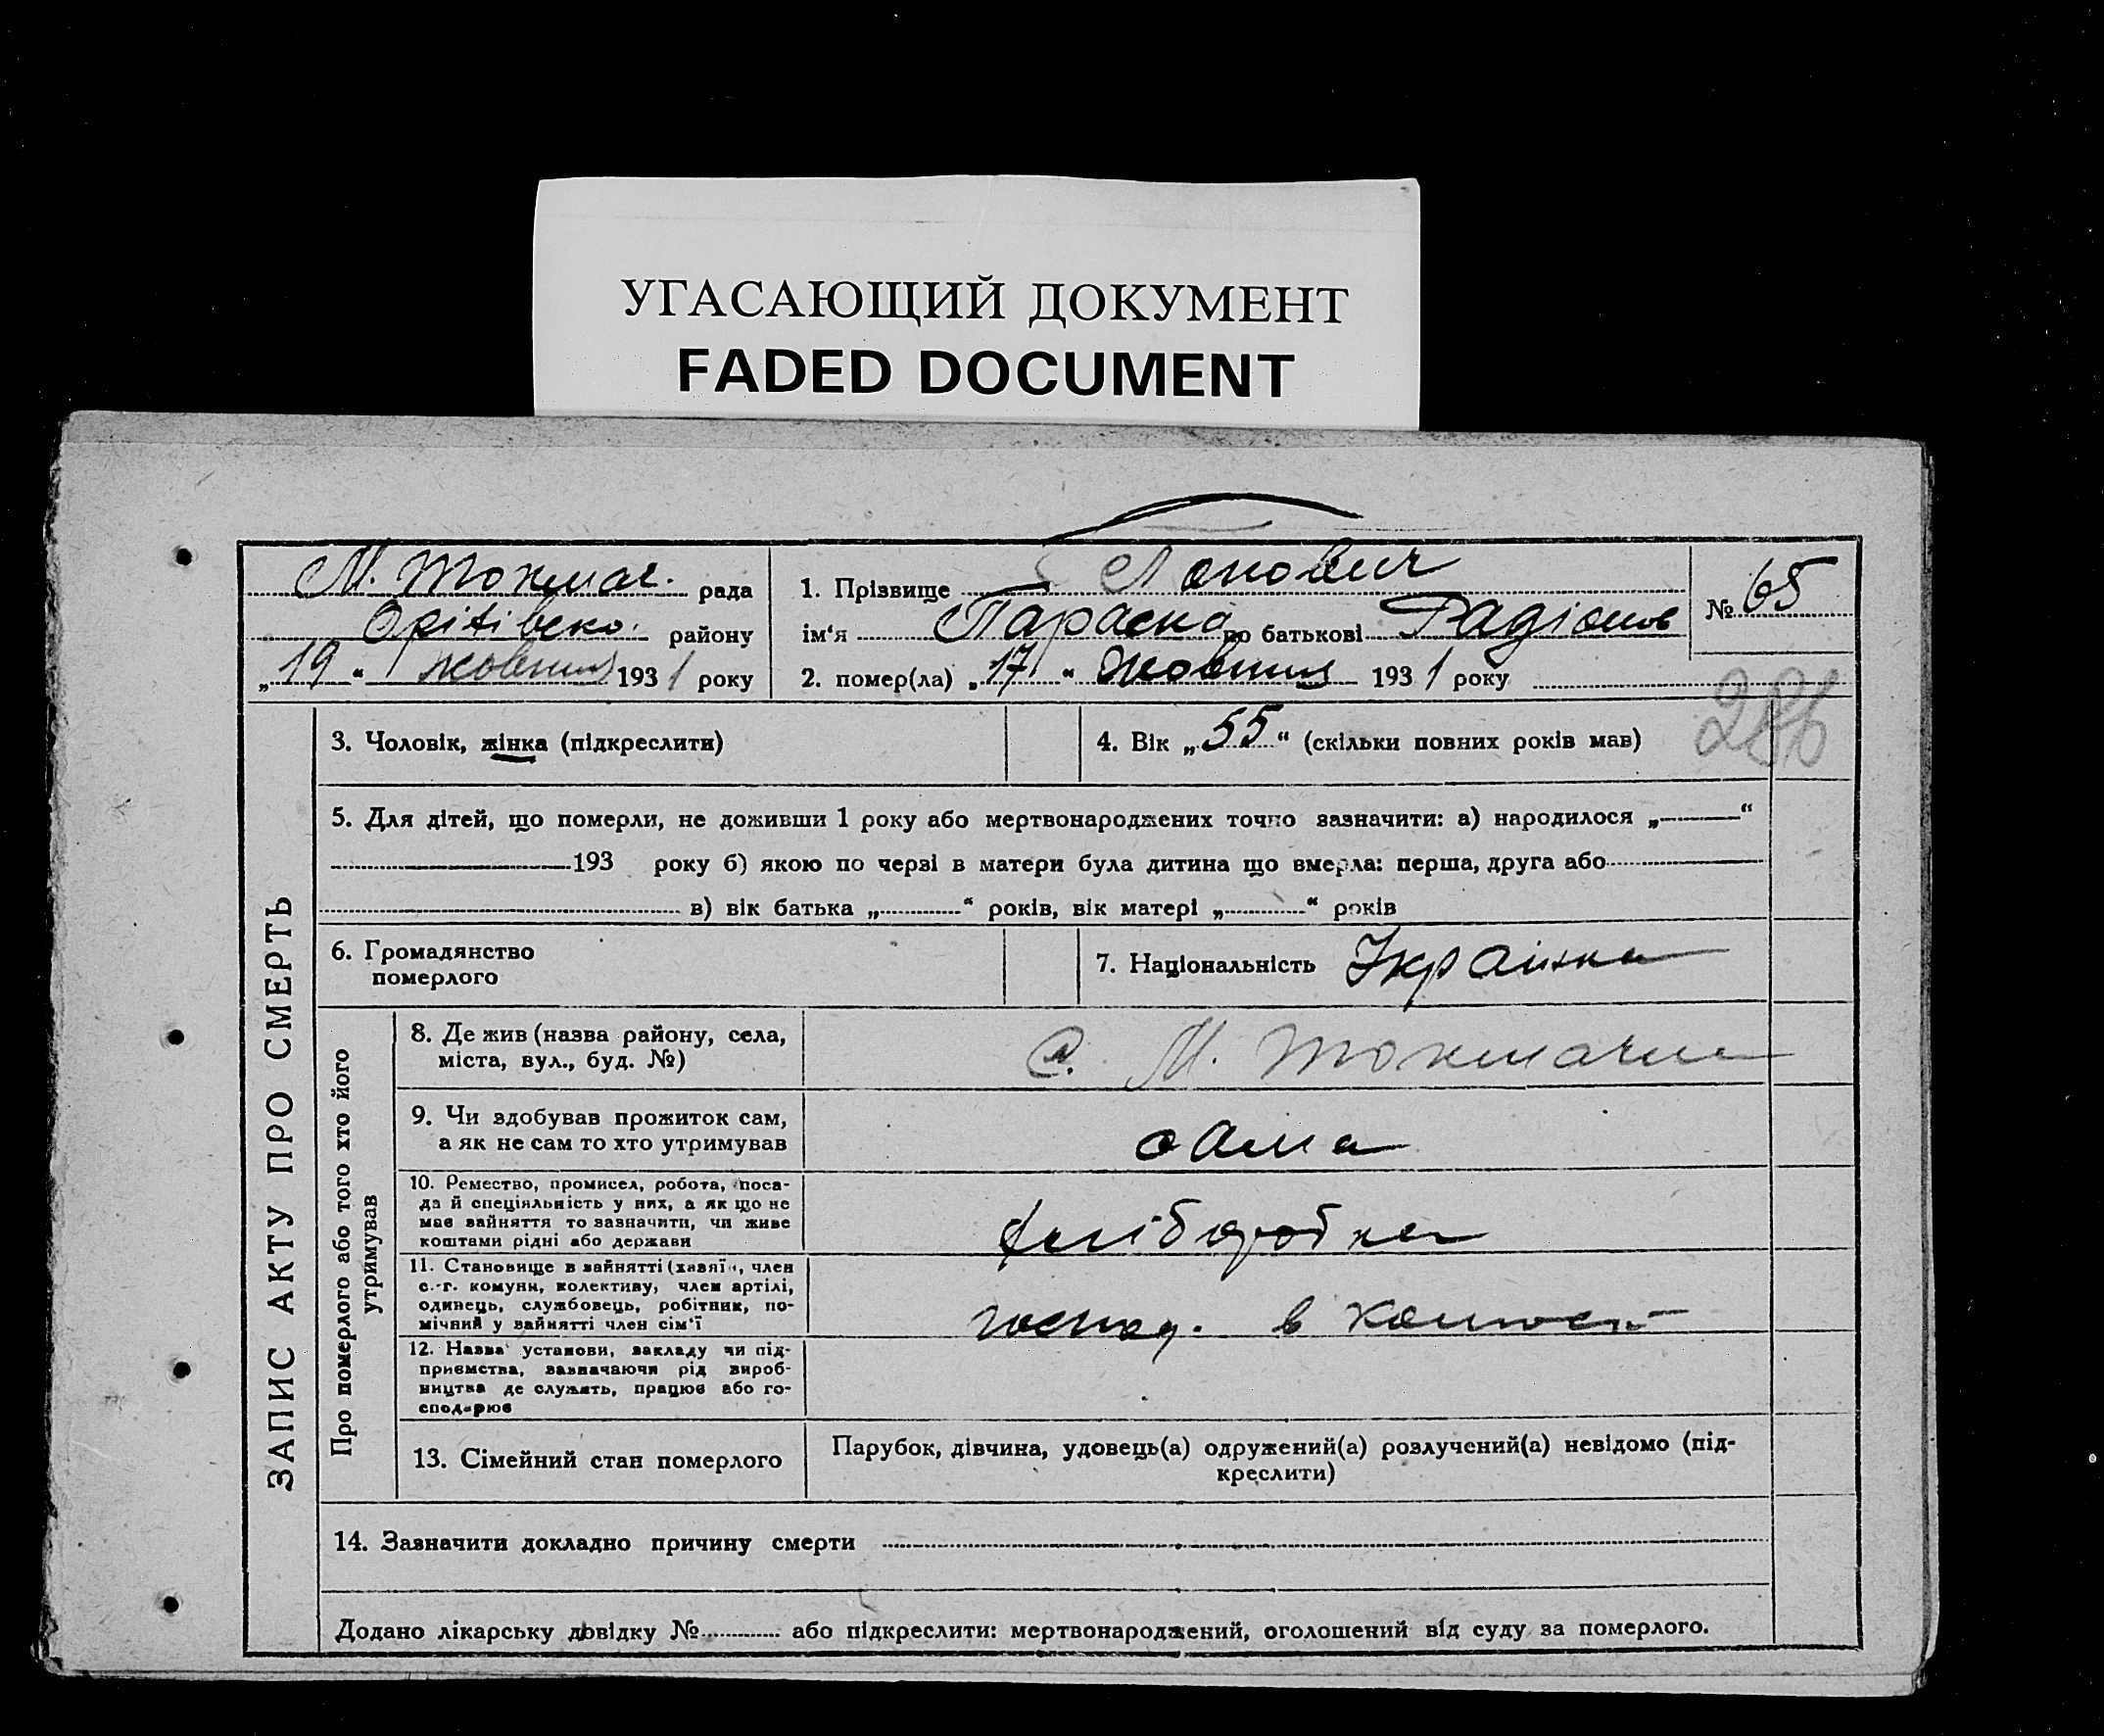 УГАСАЮЩИЙ ДОКУМЕНТ
FADED DOCUMENT
М. Токмач. рада
району
„19“ жовтня 1931 року
1. Прізвище
ім‘я Параска по батькові Радіонов
2. помер(ла) „17“ жовтня 1931 року
№ 65
286
ЗАПИС АКТУ ПРО СМЕРТЬ
3. Чоловік, жінка (підкреслити)
4. Вік „55“ (скільки повних років мав)
5. Для дітей, що померли, не доживши 1 року або мертвонароджених точно зазначити: а) народилося „ “
193 року б) якою по черзі в матери була дитина що вмерла: перша, друга або
в) вік батька „ “ років, вік матері „ “ років
6. Громадянство
померлого
7. Національність Українка
Про померлого або того хто його
утримував
8. Де жив (назва району, села,
міста, вул., буд. №)
С. М. Токмачка
9. Чи здобував прожиток сам,
а як не сам то хто утримував
сама
10. Ремество, промисел, робота, поса-
да й спеціяльність у них, а як що не
має зайняття то зазначити, чи живе
коштами рідні або держави
хліборобка
11. Становище в зайнятті (хазяїн, член
с.-г. комуни, колективу, член артілі,
одинець, службовець, робітник, по-
мічний у зайнятті член сім‘ї
господ. в
12. Назва установи, закладу чи під-
приємства, зазначаючи рід вироб-
ництва де служить, працює або го-
сподарює
13. Сімейний стан померлого
Парубок, дівчина, удовець(а) одружений(а) розлучений(а) невідомо (під-
креслити)
14. Зазначити докладно причину смерти
Додано лікарську довідку № або підкреслити: мертвонароджений, оголошений від суду за померлого.